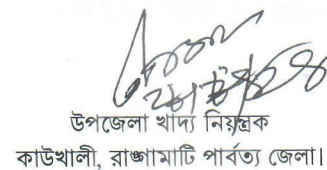 উপজেলা খাদ্য নিয়ন্ত্রক
কাউখালী, রাঙ্গামাটি পার্বত্য জেলা।